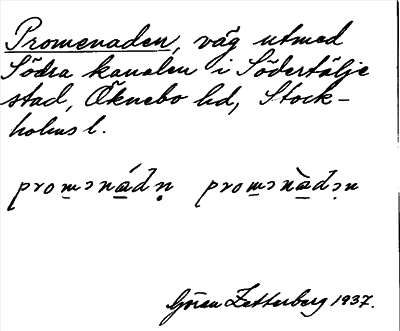 Promenaden, väg utmed
Södra kanalen i Södertälje
stad, Öknebo hd, Stock-
holms l.
promənádn̥ promənàdən
Göran Zetterberg 1937.